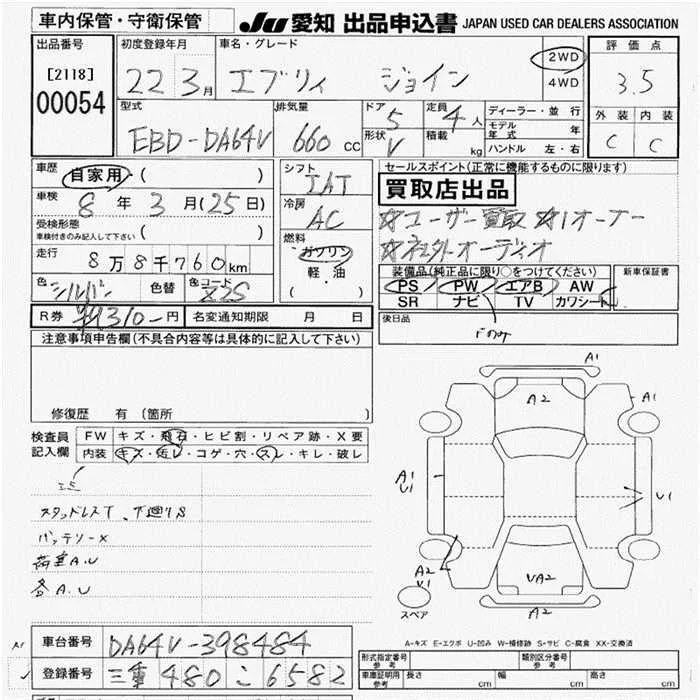 車内保管・守衛保管 JU 愛知 出品申込書 JAPAN USED CAR DEALERS ASSOCIATION
出品番号 初度登録年月 車名・グレード 2WD 評価点
[2118] 22 3月 エブリィ ジョイン 4WD 3.5
00054 型式 排気量 ドア 5 定員 4人 ディーラー・並行 外装 内装
EBD-DA64V 660cc 形状 V 積載 kg モデル年式 年 C C
ハンドル 左・右
車歴 自家用・( ) シフト IAT セールスポイント(正常に機能するものに限ります)
車検 8年 3月(25日) 冷房 AC 買取店出品
受検形態 車検付きのみ記入して下さい ( ) 燃料 ☆ユーザー買取 ☆1オーナー
走行 8万8千760km ガソリン ☆社外オーディオ
色 シルバー 色替 色コード Z2S 軽・油 ( )
装備品(純正品に限り○をつけてください) 新車保証書
PS PW エアB AW
SR ナビ TV カワシート
R券 9310-円 名変通知期限 月 日 後日品
Fのみ
注意事項申告欄(不具合内容等は具体的に記入して下さい)
修復歴 有(箇所 )
検査員記入欄 FW キズ・飛石・ヒビ割・リペア跡・X要
内装 キズ・汚レ・コゲ・穴・スレ・キレ・破レ
スタッドレスT、下廻りS
バッテリーX
荷室A.U
各A.U
A1
A2
A1
A1
U1
U1
A2
V1
UA2
スペア
A2
A-キズ E-エクボ U-凹み W-補修跡 S-サビ C-腐食 XX-交換済
車台番号 DA64V-398484
登録番号 三重 480 こ 6582
形式指定番号 参考 類別区分番号 参考
車庫証明用 参考 長さ cm 幅 cm 高さ cm